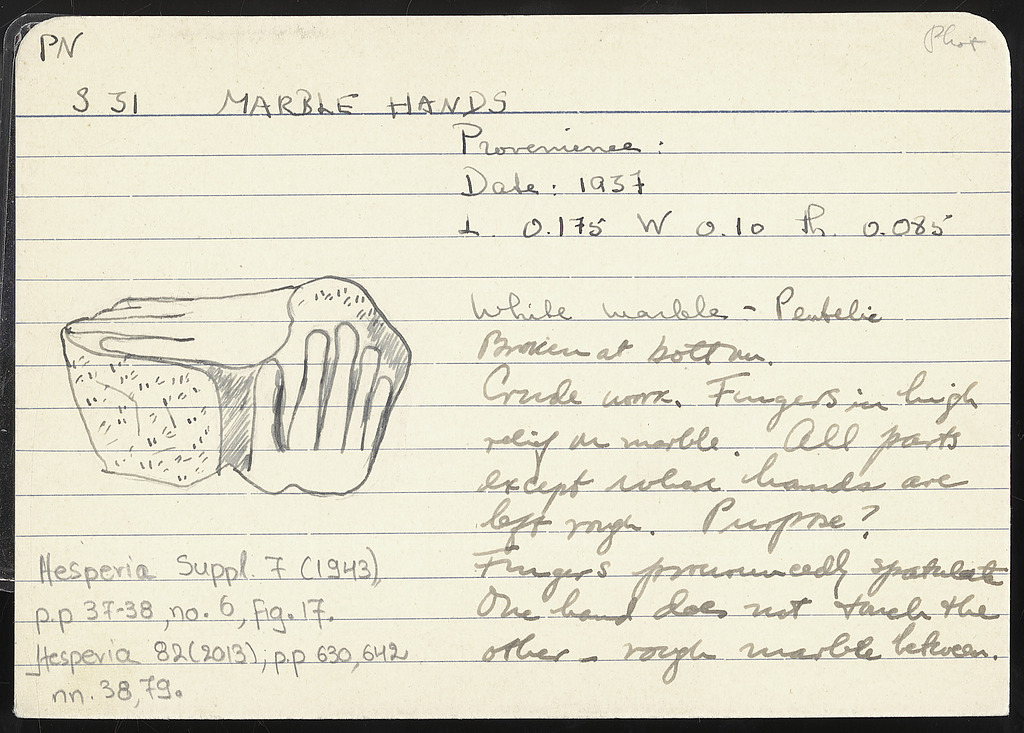 PN
Phot
S 31 MARBLE HANDS
Provenience :
Date : 1937
L. 0.175 W 0.10 Th. 0.085
White marble - Pentelic
Broken at bottom.
Crude work. Fingers in high
relief on marble. All parts
except where hands are
left rough. Purpose?
Fingers pronouncedly spatulate
One hand does not touch the
other - rough marble between.
Hesperia Suppl. 7 (1943),
p.p 37-38, no. 6, fig. 17.
Hesperia 82 (2013), p.p 630, 642
nn. 38, 79.